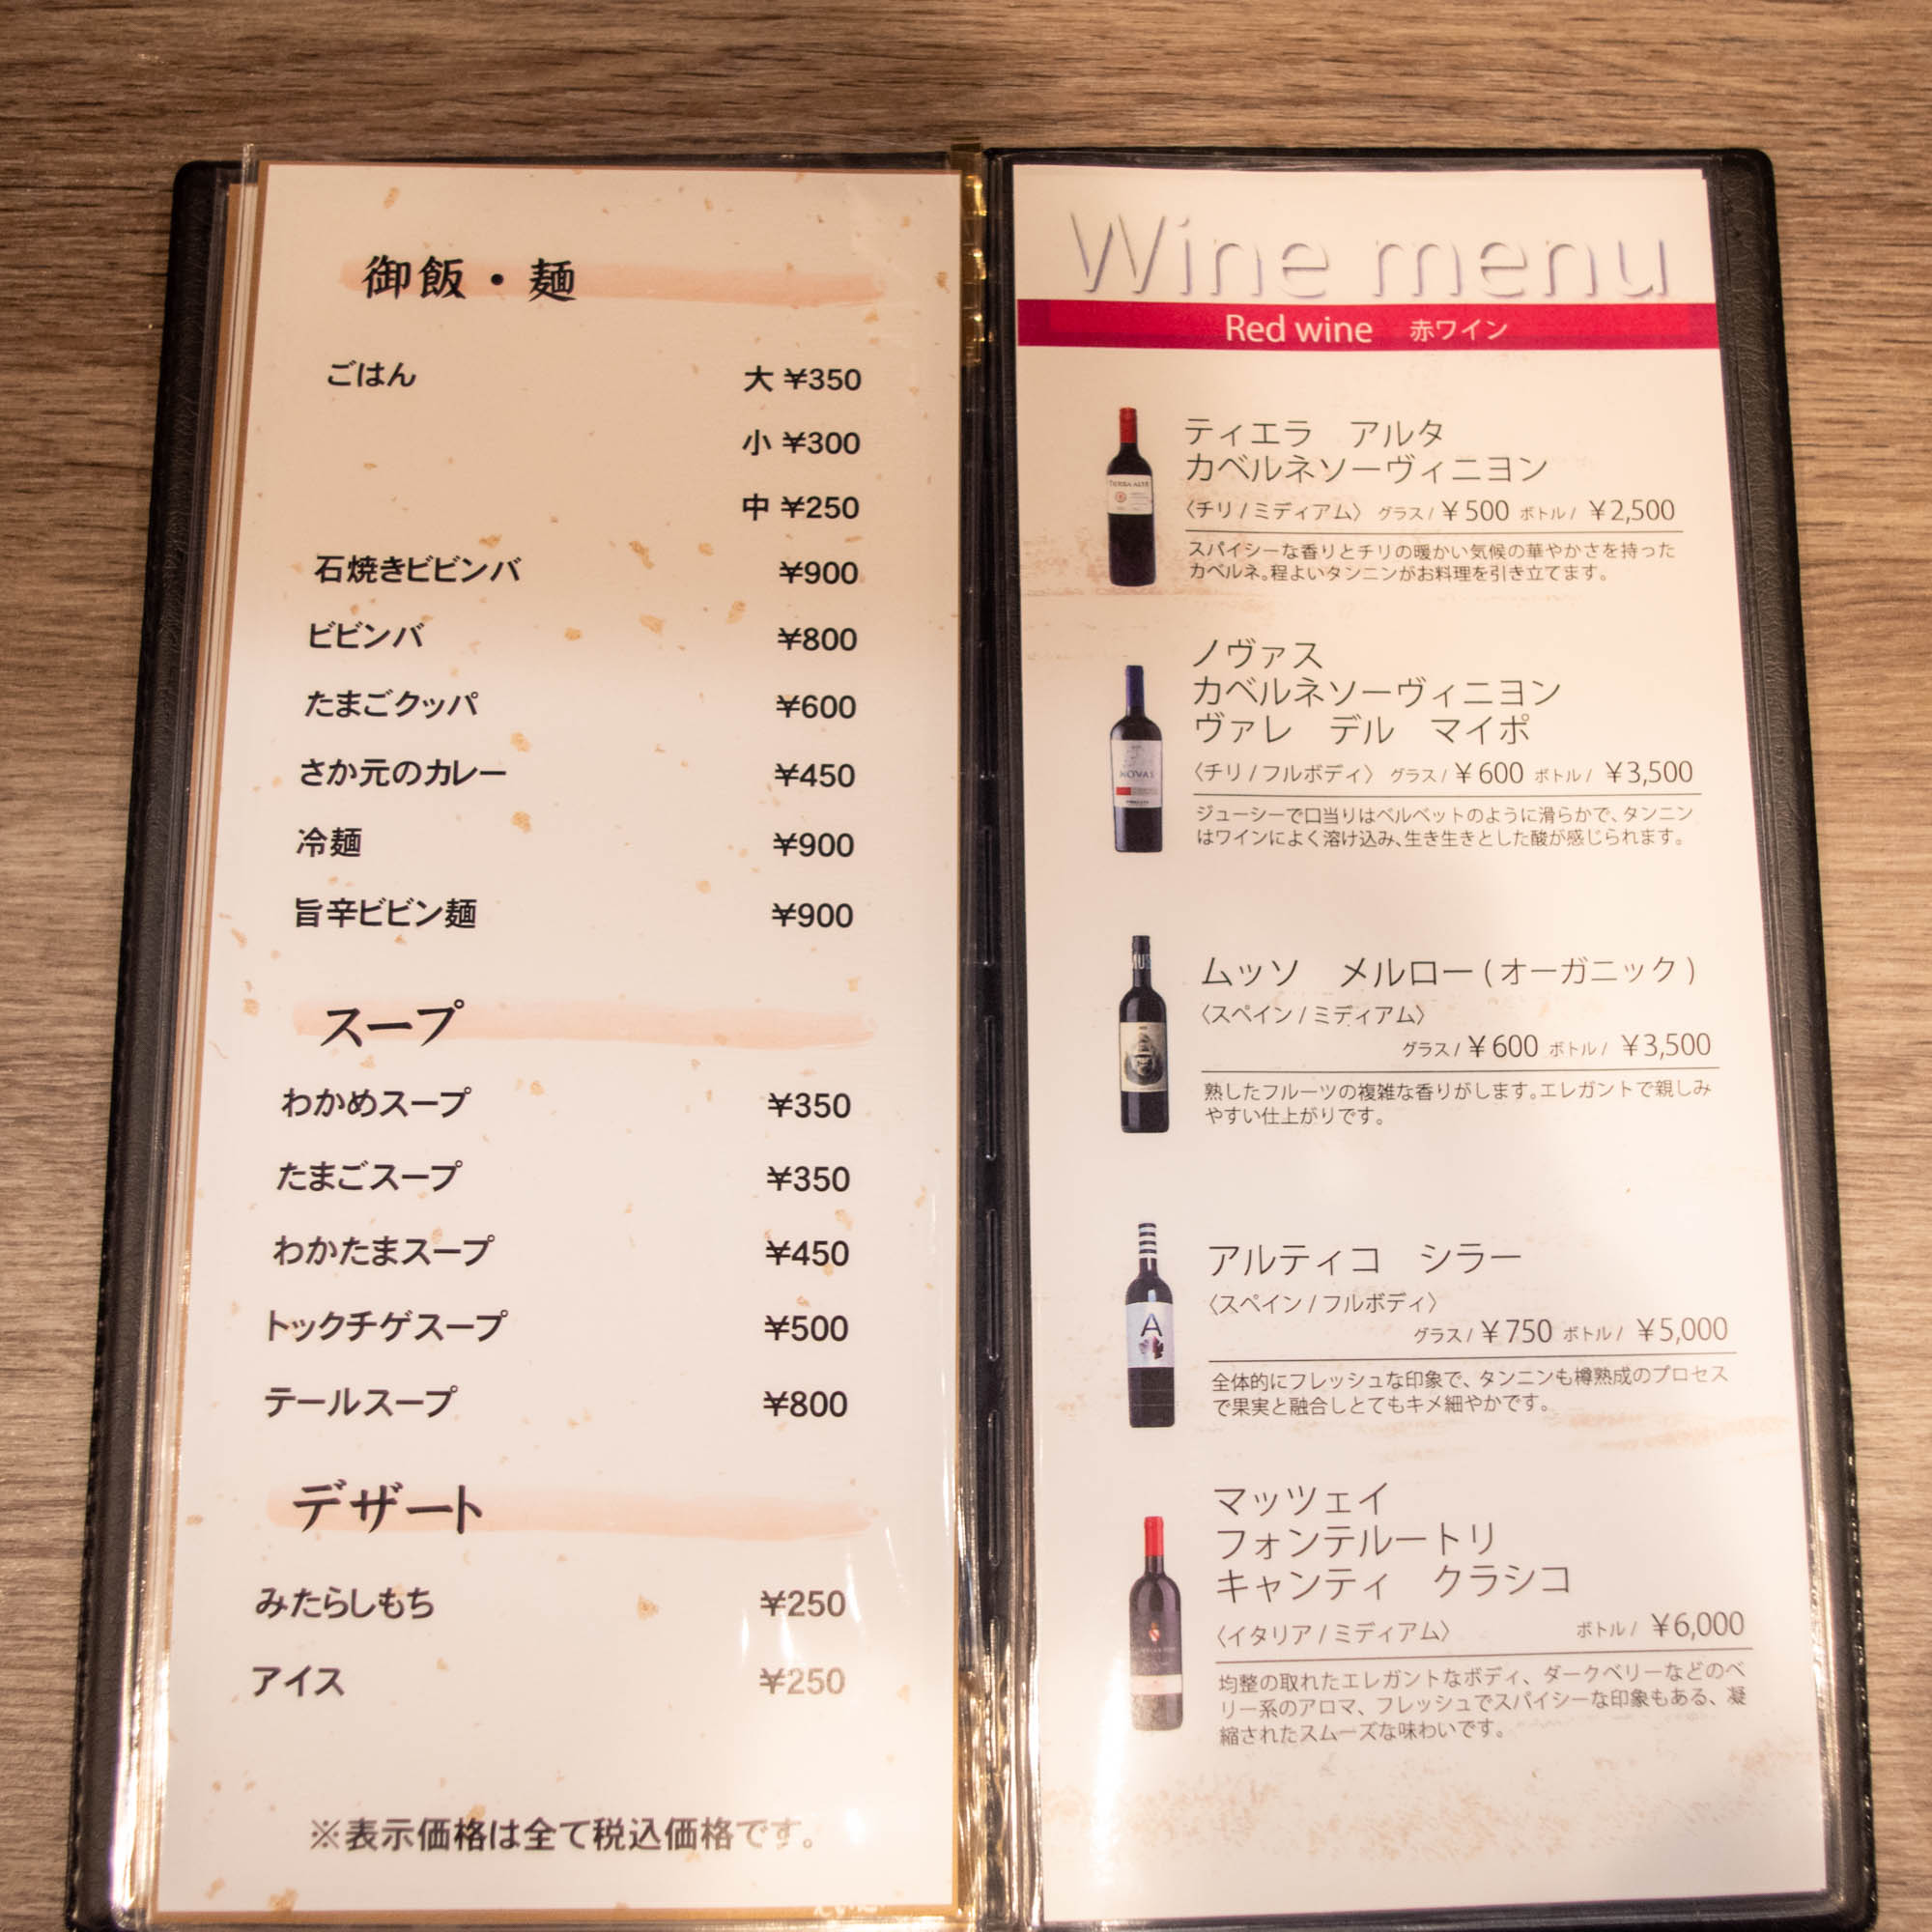 御飯・麺
ごはん 大 ¥350
小 ¥300
中 ¥250
石焼きビビンバ ¥900
ビビンバ ¥800
たまごクッパ ¥600
さか元のカレー ¥450
冷麺 ¥900
旨辛ビビン麺 ¥900
スープ
わかめスープ ¥350
たまごスープ ¥350
わかたまスープ ¥450
トックチゲスープ ¥500
テールスープ ¥800
デザート
みたらしもち ¥250
アイス ¥250
※表示価格は全て税込価格です。
Wine menu
Red wine 赤ワイン
ティエラ アルタ
カベルネソーヴィニヨン
〈チリ/ミディアム〉 グラス/¥500 ボトル/ ¥2,500
スパイシーな香りとチリの暖かい気候の華やかさを持った
カベルネ。程よいタンニンがお料理を引き立てます。
ノヴァス
カベルネソーヴィニヨン
ヴァレ デル マイポ
〈チリ/フルボディ〉 グラス/¥600 ボトル/ ¥3,500
NOVAS
ジューシーで口当りはベルベットのように滑らかで、タンニン
はワインによく溶け込み、生き生きとした酸が感じられます。
ムッソ メルロー(オーガニック)
〈スペイン/ミディアム〉
グラス/¥600 ボトル/ ¥3,500
熟したフルーツの複雑な香りがします。エレガントで親しみ
やすい仕上がりです。
アルティコ シラー
〈スペイン/フルボディ〉
グラス/¥750 ボトル/ ¥5,000
A
全体的にフレッシュな印象で、タンニンも樽熟成のプロセス
で果実と融合しとてもキメ細やかです。
マッツェイ
フォンテルートリ
キャンティ クラシコ
〈イタリア/ミディアム〉 ボトル/ ¥6,000
均整の取れたエレガントなボディ、ダークベリーなどのベ
リー系のアロマ、フレッシュでスパイシーな印象もある、凝
縮されたスムーズな味わいです。